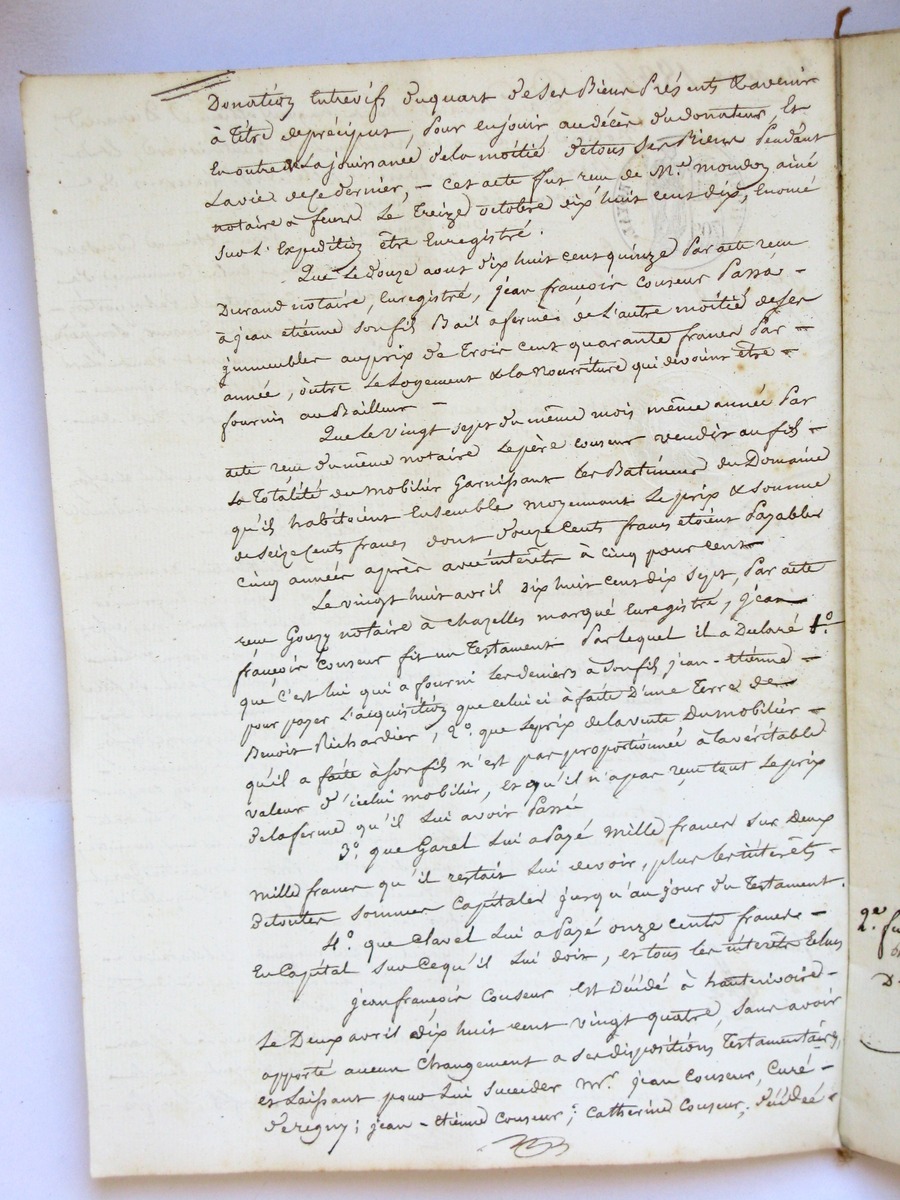 Donation Entrevifs du quart de ses Biens Présents & avenir
à titre de préciput, pour en jouir au décès du donateur, Et
En outre la jouissance de la moitié de tous ses Biens Pendant
La vie de ce dernier, — cet acte fut reçu de Me. mondon ainé
notaire a feurs Le Treize octobre dix huit cent dix, Enoncé
sur L'Expedition être Enregistré.
Que Le douze aout dix huit cent quinze Par acte reçu
Durand notaire, Enregistré, jean françois Couseur Passa —
à jean etiénne son fils Bail a ferme de L'autre moitié de ses
jmmeubles au prix de Trois cent quarante francs Par —
année, outre Le Logement & la Nourriture qui devoint être —
fournis au Bailleur —
Que Le vingt sept du même mois même année Par
acte reçu du même notaire Le père Couseur vendit au fils —
La Totalité du mobilier Garnissant les Batimens du Domaine
qu'ils habitoient Ensemble moyennant Le prix & somme
de seize cents francs dont douze cents francs étoient Payables
cinq années après avec intérêts à cinq pour cent
Le vingt huit avril dix huit cent dix sept, Par acte
reçu Gouzy notaire à chazelles marqué Enregistré, Jean
françois Couseur fit un Testament Par lequel il a Déclaré 1°.
que c'est lui qui a fourni les deniers à son fils jean-etiénne —
pour payer L'acquisition que celui ci à faite D'une Terre de
Benoit Richardier, 2°. que Le prix de la vente Du mobilier —
qu'il a faite à son fils n'est pas proportionnée à la véritable
valeur d'icelui mobilier, et qu'il n'a pas reçu tout Le prix
de la ferme qu'il Lui avoir Passée
3°. que Garel Lui a Payé mille francs sur Deux
mille francs qu'il restait Lui devoir, plus les intérêts —
de toutes sommes Capitales jusqu'au jour du Testament.
4°. que Clavel Lui a Payé onze cents francs —
En Capital sur Ce qu'il Lui doit, et tous les intérêts Echus
jean françois Couseur Est Décédé à hauterivoire —
Le Deux avril dix huit cent vingt quatre, sans avoir
apporté aucun Changement a ses dispositions Testamentaires,
et Laissant pour Lui succéder mr. jean Couseur, Curé —
de regny; jean-etiénne Couseur; Catherine Couseur, décédée —
2e.